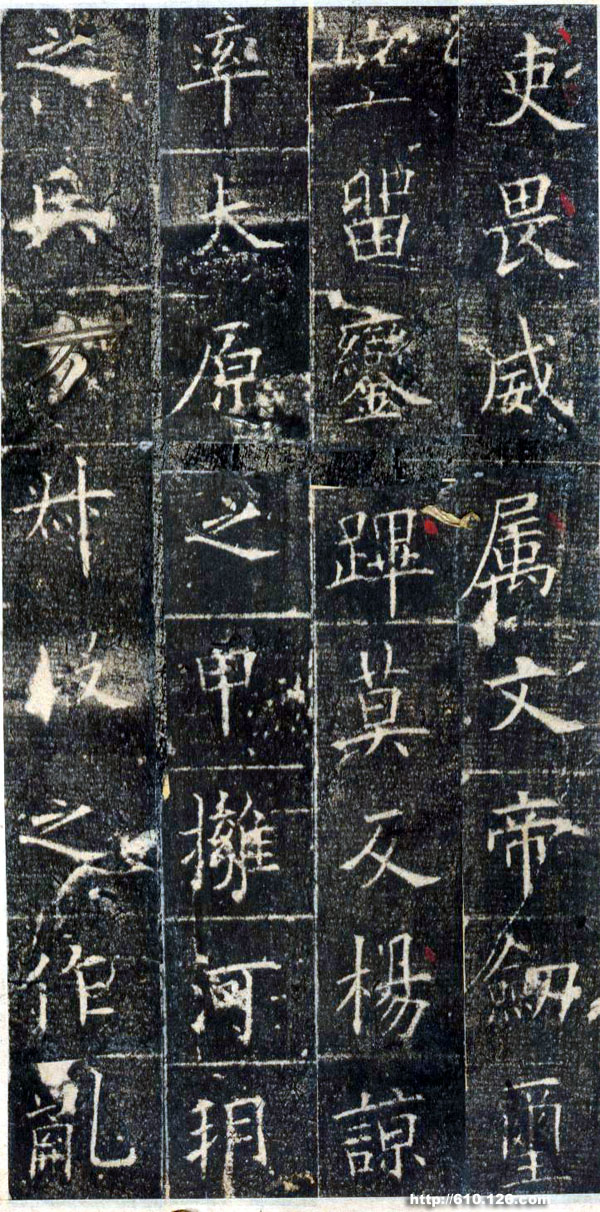 吏畏威属文帝劒璽
空留鑾蹕莫反楊諒
率大原之甲擁河朔
之兵叔段之作亂
http://610.126.com